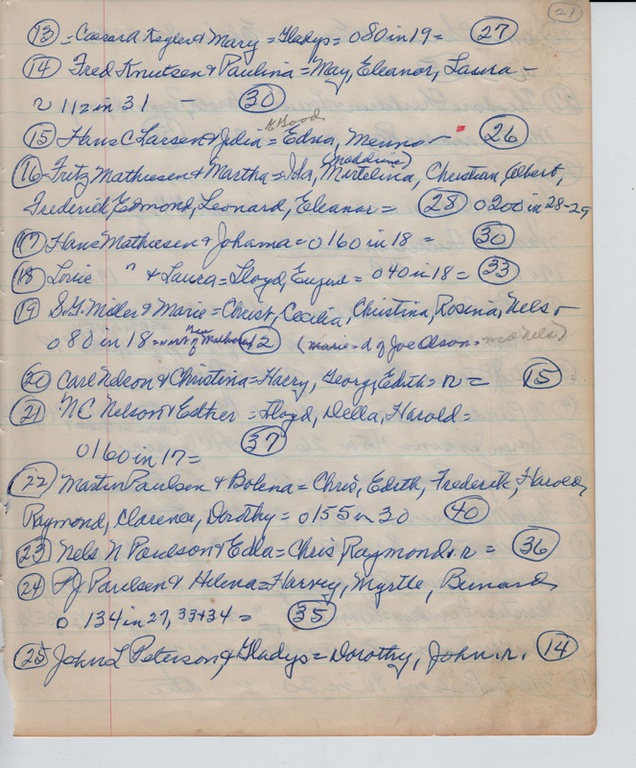 21
(13) = Cassard Kegler & Mary = Gladys = 080 in 19 = (27)
(14) Fred Knutsen & Paulina = May, Eleanor, Laura -
r 112 in 31 - (30)
Good
(15) Hans C Larsen & Julia = Edna, Menno - (26)
(Maddine)
(16) Fritz Mathiesen & Martha = Ida, Mirtelina, Christian, Albert,
Frederick, Edmond, Leonard, Eleanor = (28) 0200 in 28-29
(17) Hans Mathiesen & Johanna = 0160 in 18 = (30)
(18) Lorie " & Laura = Lloyd, Eugene = 040 in 18 = (33)
(19) S.G. Miller & Marie = Christ, Cecilia, Christina, Rosina, Nels -
080 in 18 = (12) (Marie = d of Joe Olson = Nels)
(20) Carl Nelson & Christina = Harry, George, Edith = r = (15)
(21) N C Nelson & Esther = Lloyd, Della, Harold =
0160 in 17 = (37)
(22) Martin Paulsen & Bolena = Chris, Edith, Frederik, Harold,
Raymond, Clarence, Dorothy = 0155 in 30 (40)
(23) Nels N Paulson & Edla = Chris, Raymond = r = (36)
(24) P J Paulsen & Helena = Harvey, Myrtle, Bernard
0 134 in 27, 33+34 = (35)
(25) John L Peterson & Gladys = Dorothy, John r. (14)